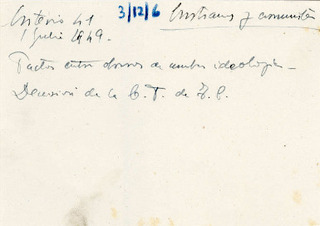 Criterio 41
1 Julio 1949.
3/12/6
Cristianos y comunistas
Pactos entre dos de ambas ideologías -
Decisión de la C. T. de F. C.